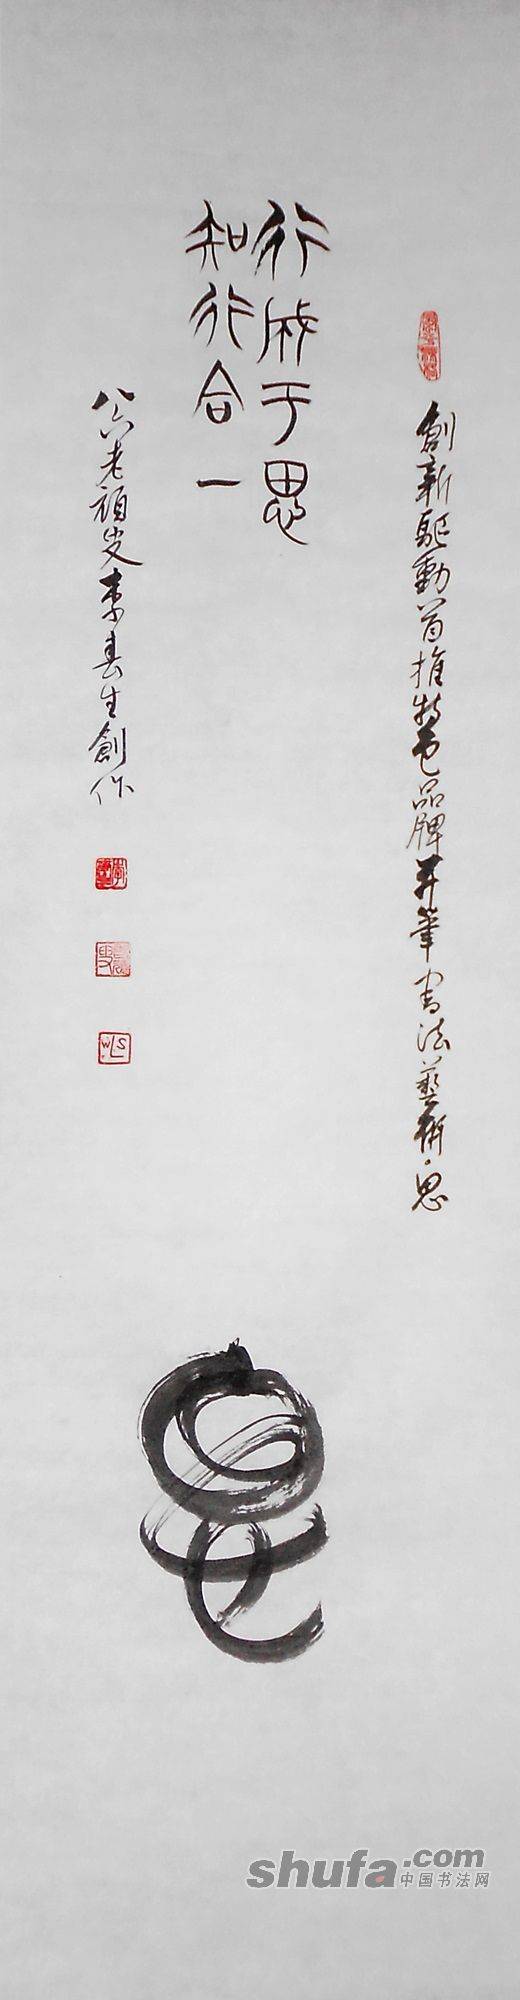 創新驅動首推特色品牌筆書法藝術·思
行成于思
知行合一
八六老頑叟李春生創作
思
shufa.com
中国书法网